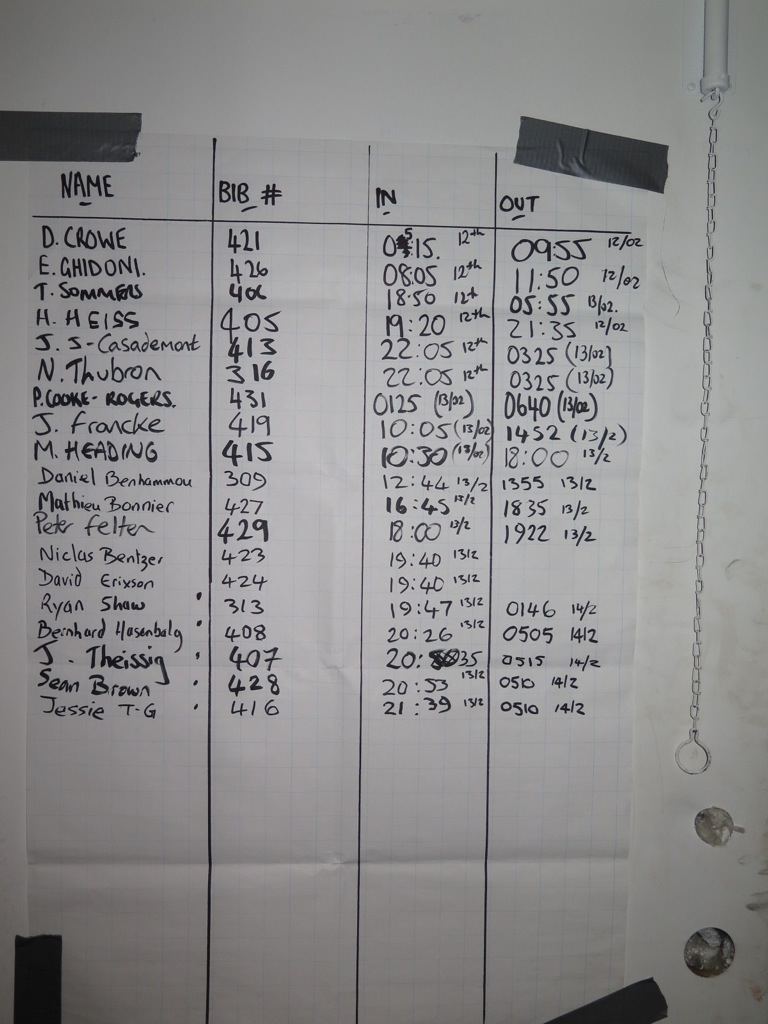 NAME BIB # IN OUT
D. CROWE 421 0515. 12th 0955 12/02
E. GHIDONI. 426 08:05 12th 11:50 12/02
T. SOMMERS 406 18:50 12th 05:55 13/02.
H. HEISS 405 19:20 12th 21:35 12/02
J. S-Casademont 413 22:05 12th 0325 (13/02)
N. Thubron 316 22:05 12th 0325 (13/02)
P. COOKE-ROGERS. 431 0125 (13/02) 0640 (13/02)
J. Francke 419 10:05 (13/02) 1452 (13/2)
M. HEADING 415 10:30 (13/02) 18:00 13/2
Daniel Benhammou 309 12:44 13/2 1355 13/2
Mathieu Bonnier 427 16:45 13/2 1835 13/2
Peter Felten 429 18:00 13/2 1922 13/2
Niclas Bentzer 423 19:40 13/2
David Erixson 424 19:40 13/2
Ryan Shaw 313 19:47 13/2 0146 14/2
Bernhard Hasenbalg 408 20:26 13/2 0505 14/2
J. Theissig 407 20:35 0515 14/2
Sean Brown 428 20:53 13/2 0510 14/2
Jessie T-G 416 21:39 13/2 0510 14/2